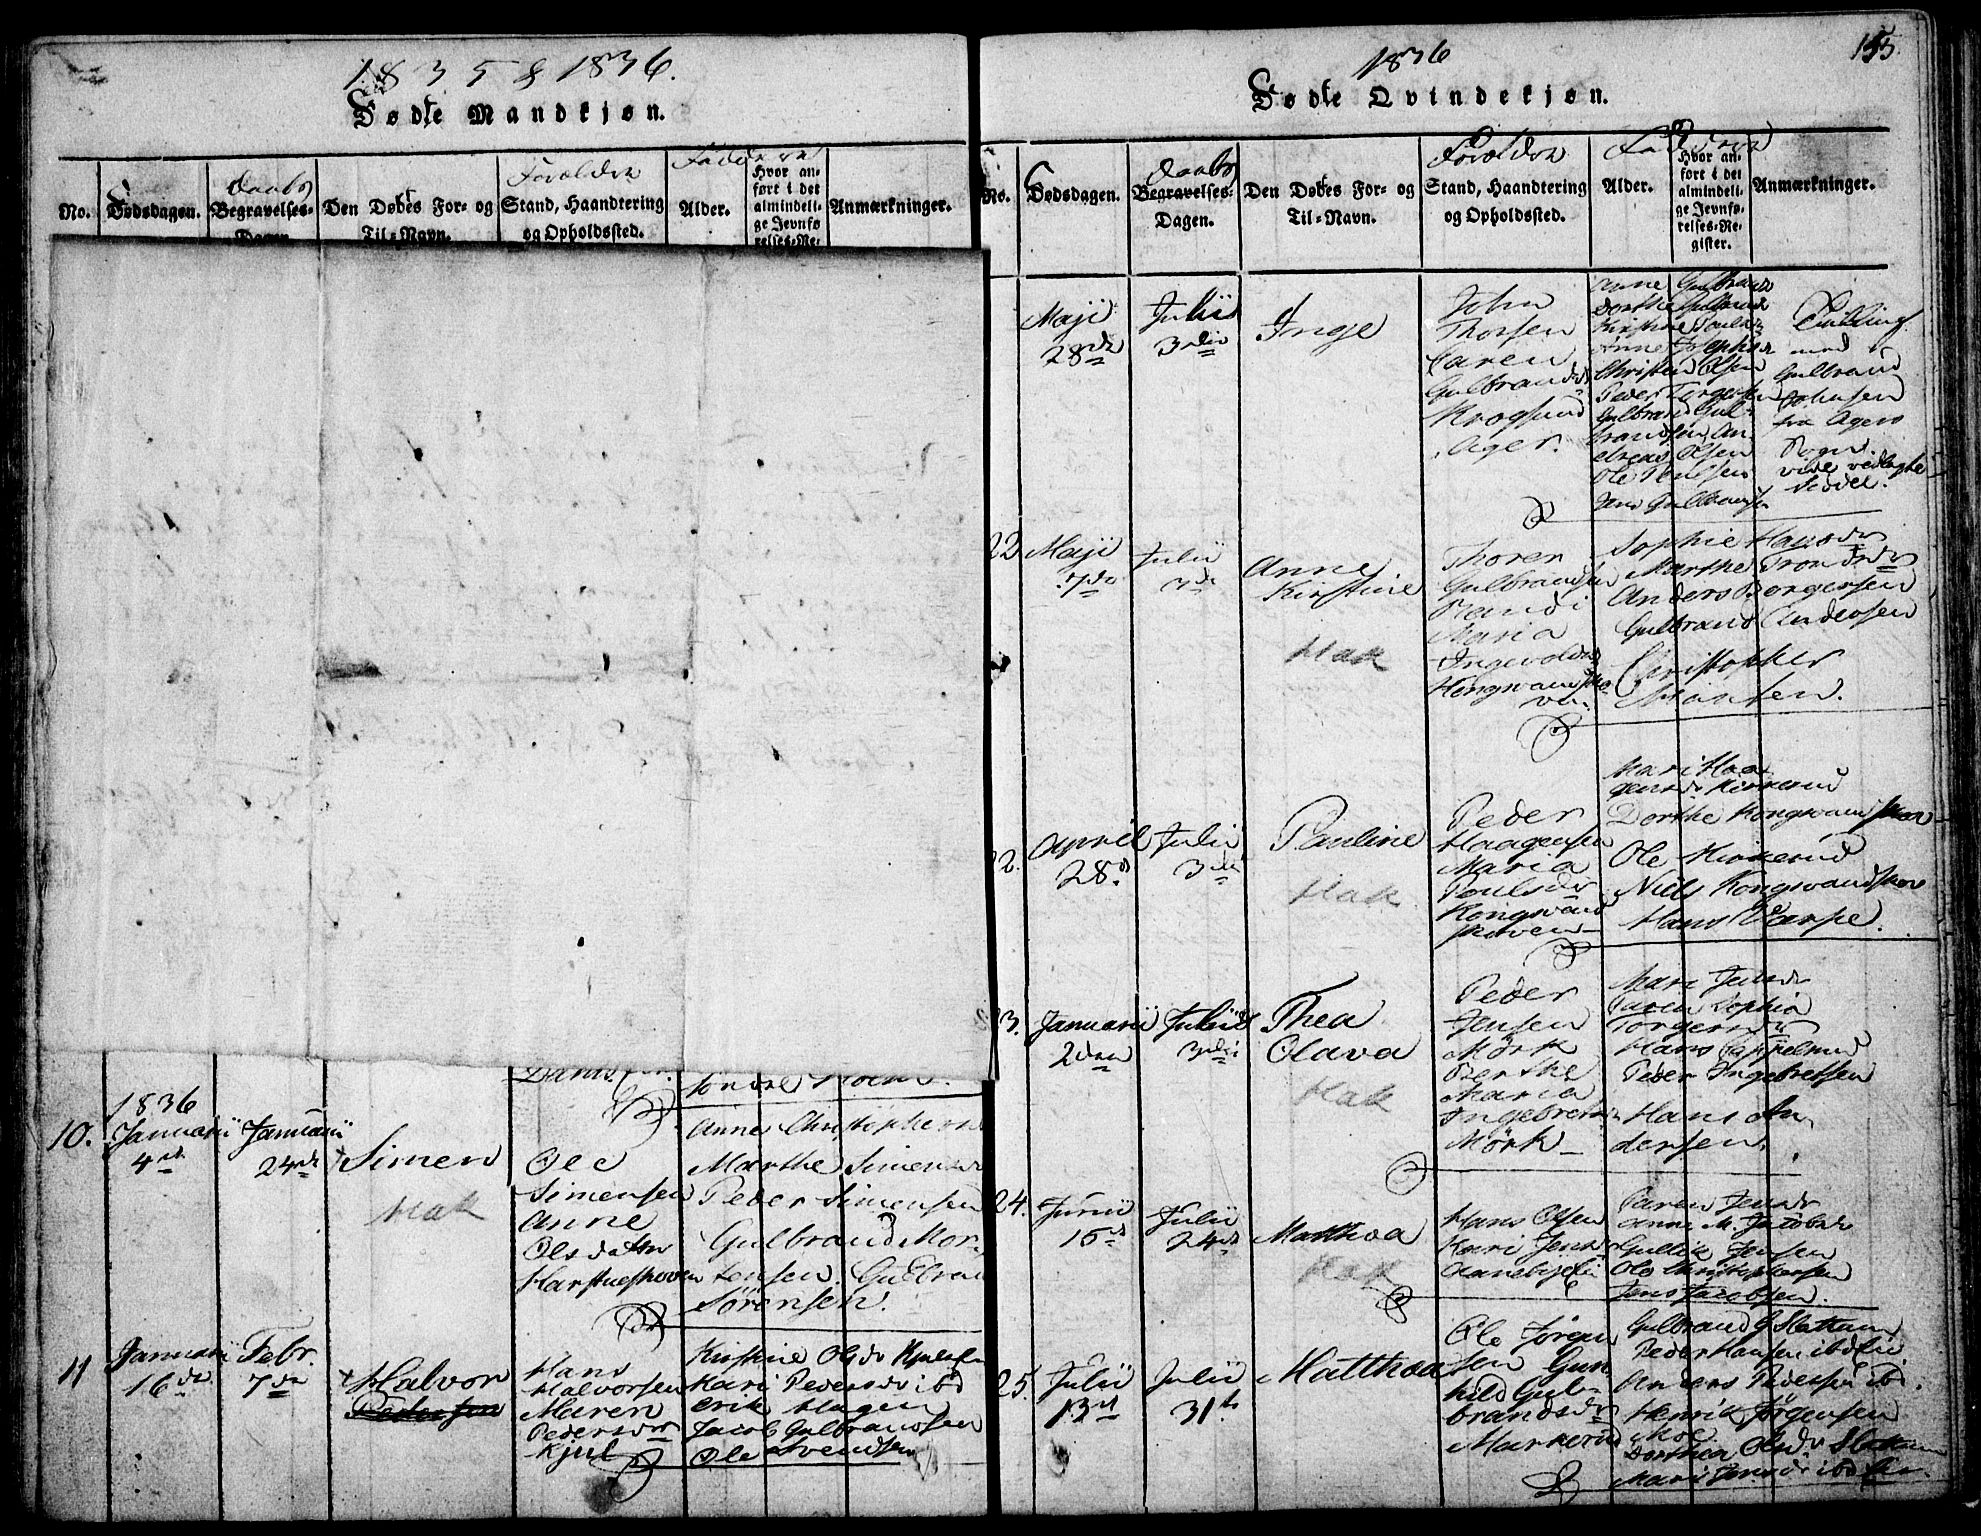 1835 & 1836.
Fødte Mandkjøn.
No.
Dødsdagen.
Daabs
Begravelses-
Dagen
Den Døbtes For- og
Til-Navn.
Forældre
Stand, Haandtering
og Opholdssted.
Faddere
Alder.
Hvor an-
ført i det
almindeli-
ge Jevnfø
relses-Re-
Anmærkninger.
10.
1836
Januarii
4
Januarii
24
Simen
Hak
Ole
Simensen
Anne
Olsdatter
Anne Christophersd
Marthe Simensd
Peder Simensen
Gulbrand Mor-
tensen. Gulbran
Sørensen.
11
Januarii
16
Febr.
7
Halvor
Pedersen
Hans
Halvorsen
Maren
Pedersdr
Kjul
Kirstine Olsdr
Kari Pedersdr ibd
Erik Hagen
Jacob Gulbrandsen
Ole Svendsen
1836
155.
Fødte Qvindekjøn.
No.
Dødsdagen.
Daabs
Begravelses-
Dagen.
Den Døbtes For- og
Til-Navn.
Forældre
Stand, Haandtering
og Opholdssted.
Faddere
Alder.
Hvor an-
ført i det
almindeli-
ge Jevnfø-
relses-Re-
gister.
Anmærkninger.
Maji
28
Julii
3
Inge
John
Thorsen
Caren
Gulbrandsd
Krogsund
Ager.
Anne Gulbrandsd
Dorthe Gulbrandsd
Kirstine Poulsd
Anne Josephsd
Christen Olsen
Peder Torgersen
Gulbrand Gul-
brandsen, An-
dreas Olsen
Ole Poulsen
Jens Gulbrandsen
Tvilling
med
Gulbrand
Johnsen
fra Agers
Sogn.
vide vedlagte
Seddel.
22
Maji
7
Julii
3
Anne
Kirstine
Hak
Thorer
Gulbrandsen
Randi
Maria
Ingevoldsd
Sophie Hansdr
Marthe Trondsdr
Anders Borgersen
Gulbrand Andersen
Christopher
Hansen.
2.
April
28
Julii
3
Pauline
Hak
Peder
Haagensen
Maria
Poulsdr
Kongsvand
skoven
Mari Haa-
gensd Kirkerud
Dorthe Kongsvandskov
Ole Kirkerud
Niels Kongsvandskov
Hans Varpe.
3.
Januarii
2den
Julii
3
Thea
Olava
Hak
Peder
Jensen
Mörk
Berthe
Maria
Ingebretsd
Mörk
Mari Jensd
Caren Sophia
Torgersdr
Hans
Peder Ingebretsen
Hans An-
dersen.
24.
Junii
15
Julii
24
Matthea
Hak
Hans Olsen
Kari Jensd
Caren Jensdr
Anne M. Jacobsdr
Gullik Jensen
Ole Christophersen
Jens Jacobsen.
25.
Julii
13
Julii
31
Matthea
Ole Jørgen
sen Gun
hild Gul-
brandsdr
Markerud
Gulbrand G Slettum
Peder Hansen ibd
Anders Pedersen ibd.
Henrik Jørgensen
Moe
Dorthea Olsdr Slettum
Mari Jensdr ibd